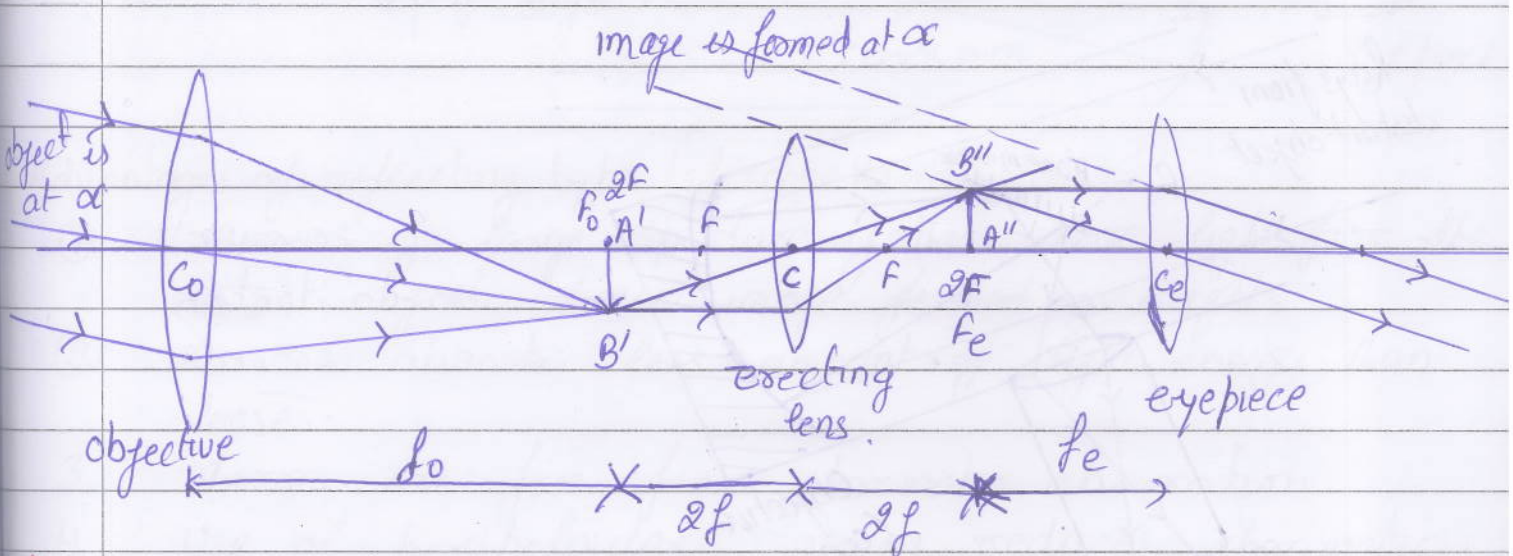 image is formed at α
object is
at α
F₀ 2F
A'
F
B''
A''
C₀
C
F
2F
Fₑ
Cₑ
B'
erecting
lens.
eyepiece
objective
f₀
2f
2f
fₑ